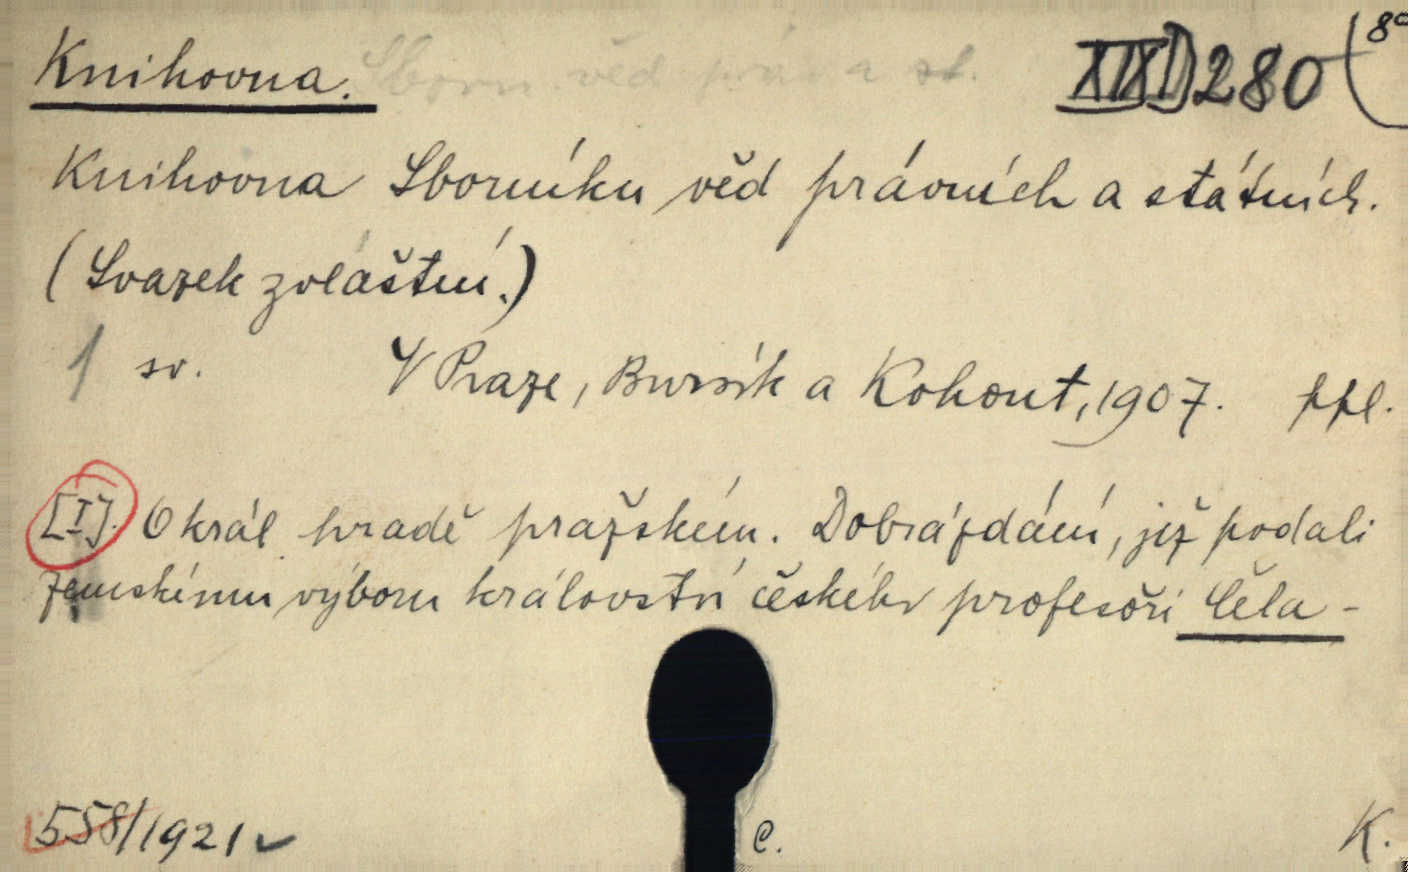 Knihovna. Sborn. věd práv. a st. XIX D 280 (8°
Knihovna Sborníku věd právních a státních.
(Svazek zvláštní.)
1 sv. V Praze, Bursík a Kohout, 1907. ppl.
[I]. O král hradě pražském. Dobrázdání, jež podali
zemskému výboru království českého profesoři Čela-
558/1921 C. K.